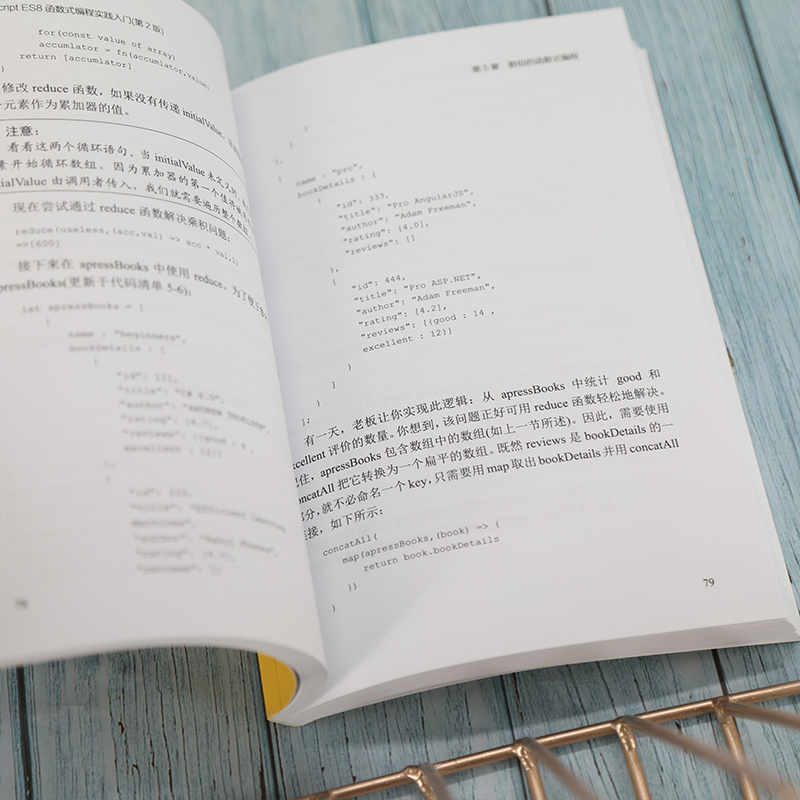 cript ES8 函数式编程实践入门(第 2 版)
for(const value of array)
accumlator = fn(accumlator,value)
return [accumlator]
}
修改 reduce 函数，如果没有传递 initialValue，
元素作为累加器的值。
注意：
看看这两个循环语句。当 initialValue 未定义时，
素开始循环数组，因为累加器的第一个值将被
tialValue 由调用者传入，我们就需要遍历整个数组
现在尝试通过 reduce 函数解决乘积问题：
reduce(useless,(acc,val) => acc * val,1)
=>[600]
接下来在 apressBooks 中使用 reduce。为了便于
pressBooks(更新于代码清单 5-6)：
let apressBooks = [
{
name : "beginners",
bookDetails : [
{
"id": 111,
"title": "C# 6.0",
"author": "ANDREW TROELSEN",
"rating": [4.7],
"reviews": [{good : 4 ,
excellent : 12}]
},
{
"id": 222,
"title": "Efficient Learning
Machines",
"author": "Rahul Khanna",
"rating": [4.5],
"reviews": []
78
第 5 章 数组的函数式编程
}
]
},
{
name : "pro",
bookDetails : [
{
"id": 333,
"title": "Pro AngularJS",
"author": "Adam Freeman",
"rating": [4.0],
"reviews": []
},
{
"id": 444,
"title": "Pro ASP.NET",
"author": "Adam Freeman",
"rating": [4.2],
"reviews": [{good : 14 ,
excellent : 12}]
}
]
}
];
有一天，老板让你实现此逻辑：从 apressBooks 中统计 good 和
xcellent 评价的数量。你想到，该问题正好可用 reduce 函数轻松地解决。
记住，apressBooks 包含数组中的数组(如上一节所述)。因此，需要使用
oncatAll 把它转换为一个扁平的数组。既然 reviews 是 bookDetails 的一
部分，就不必命名一个 key，只需要用 map 取出 bookDetails 并用 concatAll
连接，如下所示：
concatAll(
map(apressBooks,(book) => {
return book.bookDetails
})
)
79